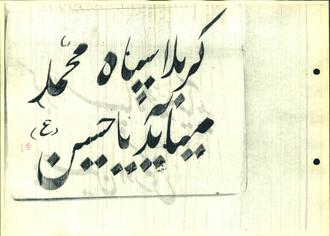 کربلا سپاه محمد
میآید یا حسین (ع)
۱۵